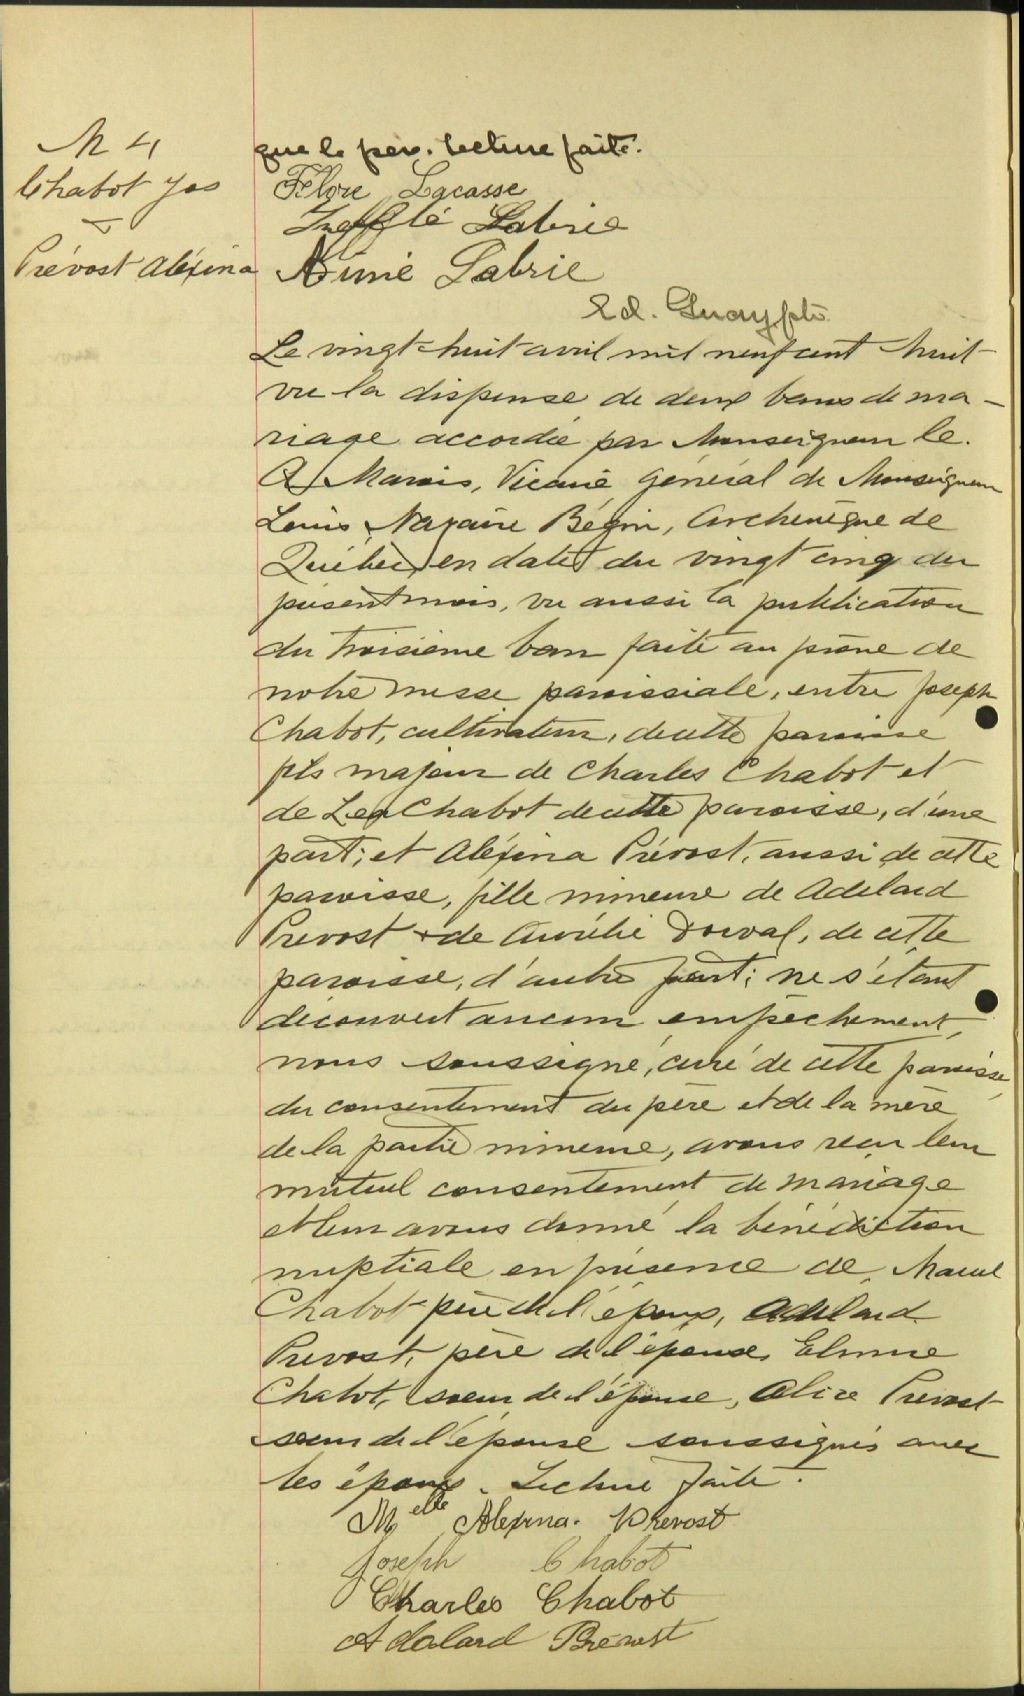 M 4
Chabot Jos
&
Prévost Aléxina
que le père. Lecture faite.
Flore Lacasse
Trefflé Labrie
Aimé Labrie
Ed. Guay ptr
Le vingt-huit avril mil neuf cent huit
vu la dispense de deux bans de ma-
riage accordée par Monseigneur C.
A. Marois, Vicaire Général de Monseigneur
Louis Nazaire Bégin, Archevêque de
Québec, en date du vingt cinq du
présent mois, vu aussi la publication
du troisième ban faite au prône de
notre messe paroissiale, entre Joseph
Chabot, cultivateur, de cette paroisse
fils majeur de Charles Chabot et
de Lea Chabot de cette paroisse, d'une
part; et Aléxina Prévost, aussi de cette
paroisse, fille mineure de Adelard
Prevost & de Aurélie Dorval, de cette
paroisse, d'autre part; ne s'étant
découvert aucun empêchement,
nous soussigné, curé de cette paroisse,
du consentement du père et de la mère
de la partie mineure, avons reçu leur
mutuel consentement de mariage
et leur avons donné la bénédiction
nuptiale en présence de
Chabot père de l'époux, Adelard
Prevost, père de l'épouse,
Chabot, soeur de l'épouse, Alice Prevost
soeur de l'épouse soussignés avec
les époux. Lecture faite.
Melle Alexina. Prevost
Joseph Chabot
Charles Chabot
Adalard Prévost